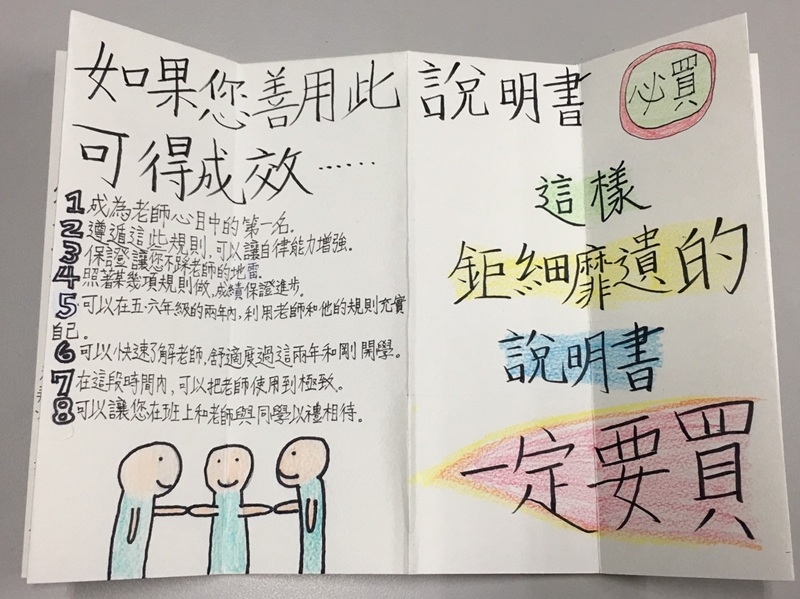 如果您善用此說明書
可得成效……
1 成為老師心目中的第一名。
2 遵遁這些規則,可以讓自律能力增強。
3 保證讓您不踩老師的地雷。
4 照著某幾項規則做,成績保證進步。
5 可以在五、六年級的兩年內,利用老師和他的規則充實
自己。
6 可以快速了解老師,舒適度過這兩年和剛開學。
7 在這段時間內,可以把老師使用到極致。
8 可以讓您在班上和老師與同學以禮相待。
必買
這樣
鉅細靡遺的
說明書
一定要買